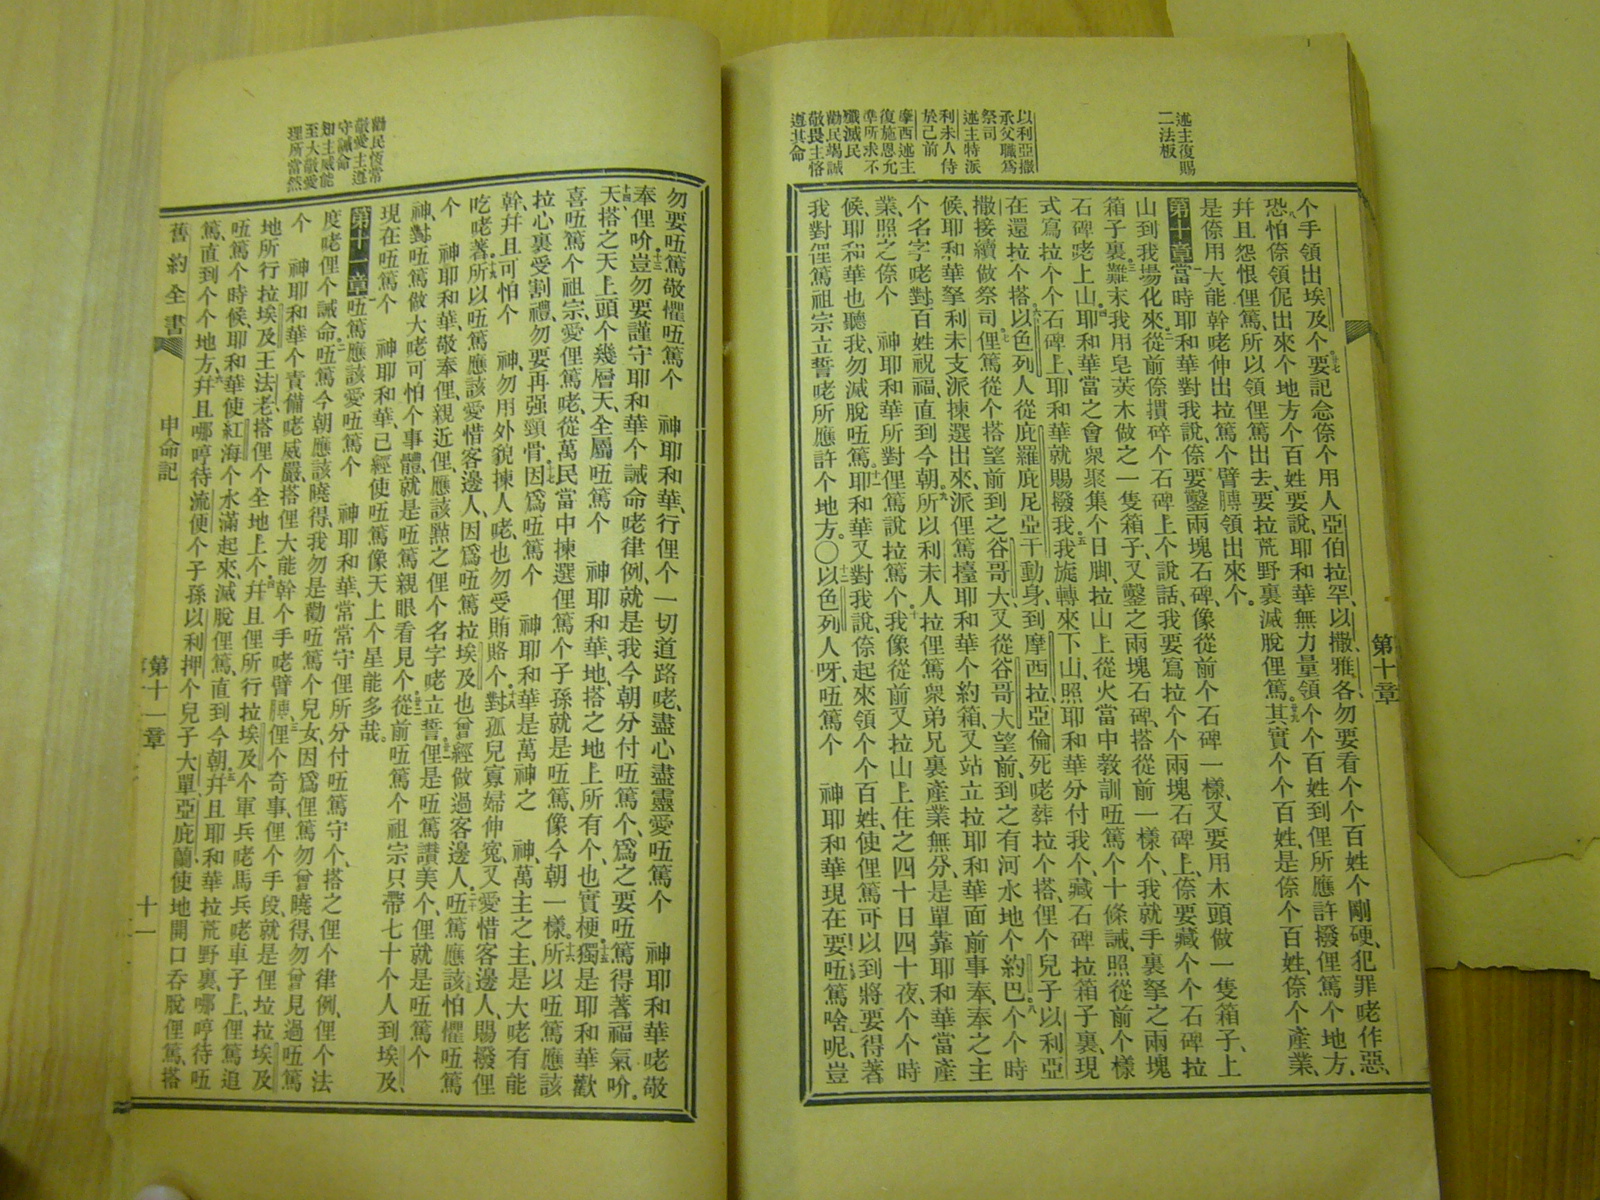 述主復賜
二法板
以利亞撒
承父職爲
祭司
述主特派
利未人侍
於己前
摩西述主
復施恩允
準所求不
殲滅民
勸民竭誠
敬畏主恪
遵其命
第十章
个手領出埃及个要記念倷个用人亞伯拉罕、以撒雅各、勿要看个个百姓个剛硬、犯罪咾作惡、
恐怕倷領伲出來个地方个百姓要說、耶和華無力量領个个百姓到俚所應許撥俚篤个地方、
幷且怨恨俚篤、所以領俚篤出去、要拉荒野裏滅脫俚篤其實个个百姓、是倷个百姓、倷个產業、
是倷用大能幹咾伸出拉篤个臂膊領出來个。
第十章當時耶和華對我說、倷要鑿兩塊石碑、像從前个石碑一樣、又要用木頭做一隻箱子、上
山到我場化來從前倷摜碎个石碑上个說話、我要寫拉个个兩塊石碑上、倷要藏个个石碑拉
箱子裏難末我用皂莢木做之一隻箱子、又鑿之兩塊石碑、搭從前一樣个、我就手裏拏之兩塊
石碑咾上山耶和華當之會衆聚集个日脚、拉山上從火當中教訓㕶篤个十條誡、照從前个樣
式寫拉个个石碑上、耶和華就賜撥我我旋轉來下山、照耶和華分付我个、藏石碑拉箱子裏、現
在還拉个搭以色列人從庇羅庇尼亞干動身、到摩西拉、亞倫死咾葬拉个搭、俚个兒子以利亞
撒接續做祭司俚篤從个搭望前到之谷哥大、又從谷哥大望前、到之有河水地个約巴个个時
候、耶和華拏利未支派揀選出來、派俚篤擡耶和華个約箱、又站立拉耶和華面前事奉、奉之主
个名字咾對百姓祝福、直到今朝所以利未人拉俚篤衆弟兄裏產業無分、是單靠耶和華當產
業、照之倷个　神耶和華所對俚篤說拉篤个我像從前又拉山上住之四十日四十夜、个个時
候、耶和華也聽我勿滅脫㕶篤耶和華又對我說、倷起來領个个百姓、使俚篤可以到將要得著
我對俚篤祖宗立誓咾所應許个地方。〇以色列人呀、㕶篤个　神耶和華現在要㕶篤啥呢、豈
勸民恆常
敬愛主遵
守誡命
知主威能
至大敬愛
理所當然
勿要㕶篤敬懼㕶篤个　神耶和華、行俚个一切道路咾、盡心盡靈愛㕶篤个　神耶和華咾敬
奉俚吤豈勿要謹守耶和華个誡命咾律例、就是我今朝分付㕶篤个、爲之要㕶篤得著福氣吤。
天搭之天上頭个幾層天、全屬㕶篤个　神耶和華、地搭之地上所有个、也實梗獨是耶和華歡
喜㕶篤个祖宗、愛俚篤咾、從萬民當中揀選俚篤个子孫就是㕶篤、像今朝一樣所以㕶篤應該
拉心裏受割禮、勿要再强頸骨因爲㕶篤个　神耶和華是萬神之　神、萬主之主、是大咾有能
幹、幷且可怕个　神、勿用外貌揀人咾、也勿受賄賂个對孤兒寡婦伸寃、又愛惜客邊人、賜撥俚
吃咾著所以㕶篤應該愛惜客邊人、因爲㕶篤拉埃及也曾經做過客邊人㕶篤應該怕懼㕶篤
个　神耶和華、敬奉俚、親近俚、應該點之俚个名字咾立誓俚是㕶篤讚美个、俚就是㕶篤个
神、對㕶篤做大咾可怕个事體、就是㕶篤親眼看見个從前㕶篤个祖宗只帶七十个人到埃及、
現在㕶篤个　神耶和華、已經使㕶篤像天上个星能多哉。
第十一章㕶篤應該愛㕶篤个　神耶和華、常常守俚所分付㕶篤守个、搭之俚个律例、俚个法
度咾俚个誡命㕶篤今朝應該曉得、我勿是勸㕶篤个兒女因爲俚篤勿曾曉得、勿曾見過㕶篤
个　神耶和華个責備咾威嚴、搭俚大能幹个手咾臂膊俚个奇事、俚个手段、就是俚垃拉埃及
地所行拉埃及王法老、搭俚个全地上个幷且俚所行拉埃及个軍兵咾馬兵咾車子上、俚篤追
㕶篤个時候、耶和華使紅海个水滿起來、滅脫俚篤、直到今朝幷且耶和華拉荒野裏、哪哼待㕶
篤、直到个个地方幷且哪哼待流便个子孫以利押个兒子大單、亞庇蘭、使地開口吞脫俚篤、搭
舊約全書
申命記
第十一章
十一